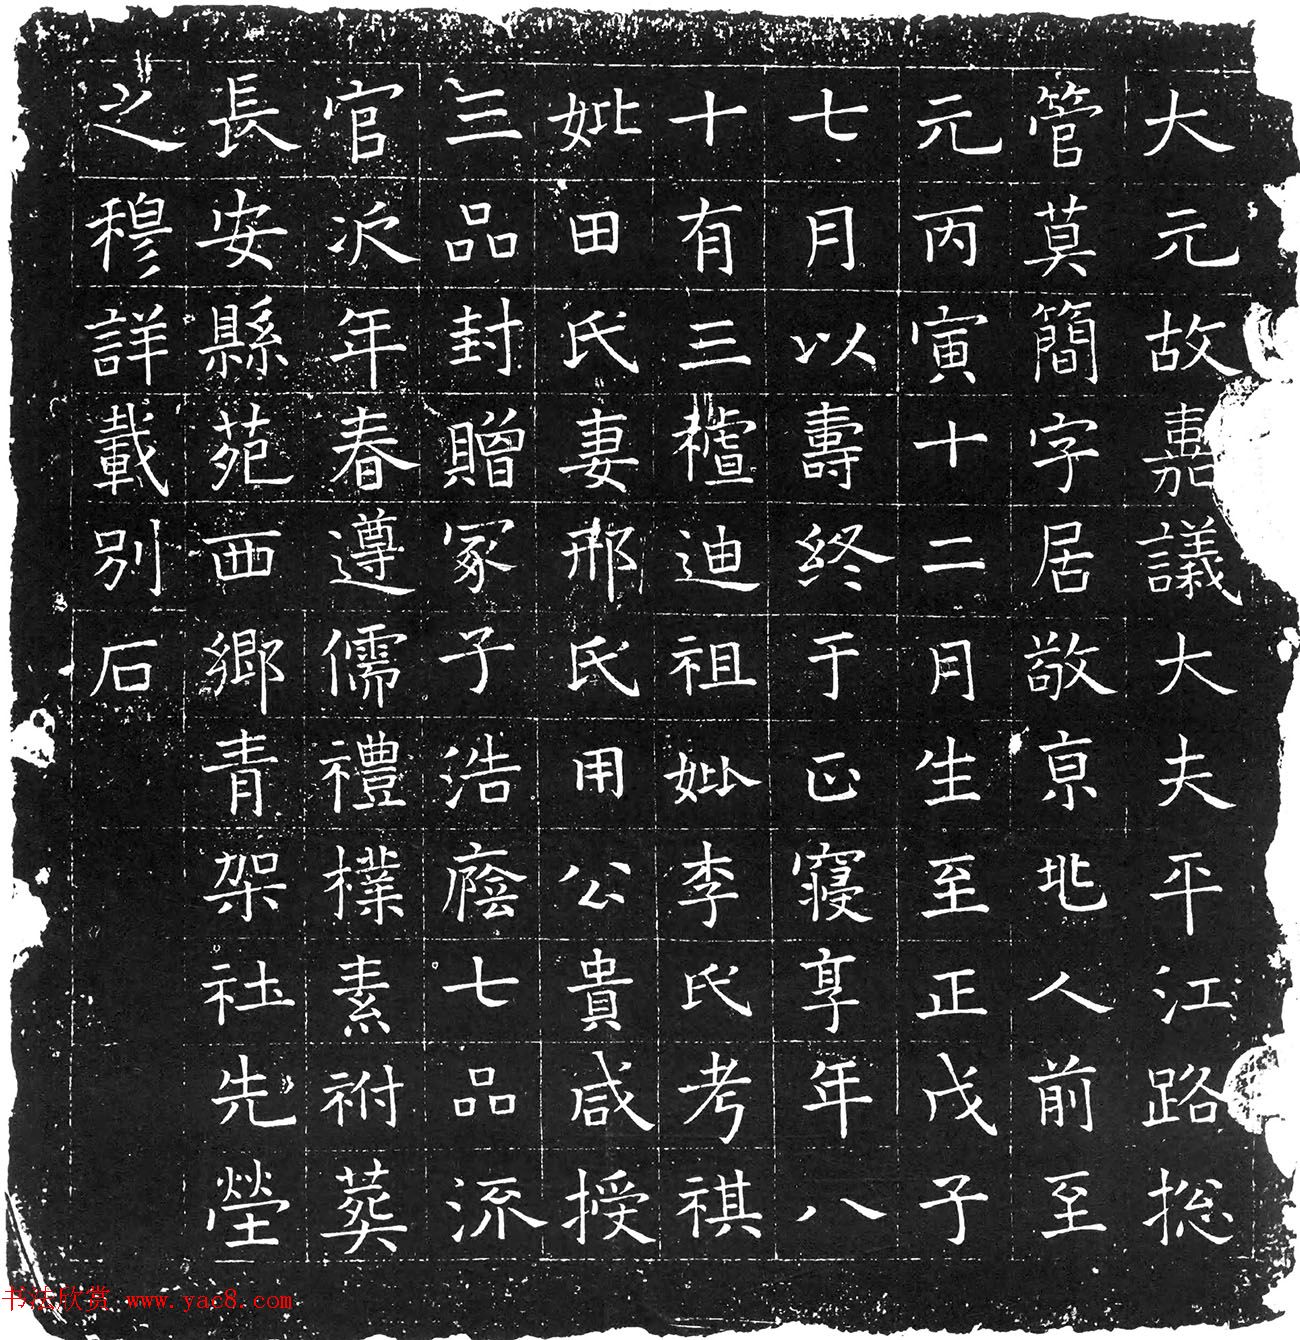 大元故嘉議大夫平江路捴
管莫簡字居敬京兆人前至
元丙寅十二月生至正戊子
七月以壽終于正寢享年八
十有三穯迪祖妣李氏考祺
妣田氏妻邢氏用公貴咸授
三品封贈冢子浩廕七品流
官次年春遵儒禮樸素祔葬
長安縣苑西鄉青架社先塋
之穆詳載別石
书法欣赏 www.yac8.com